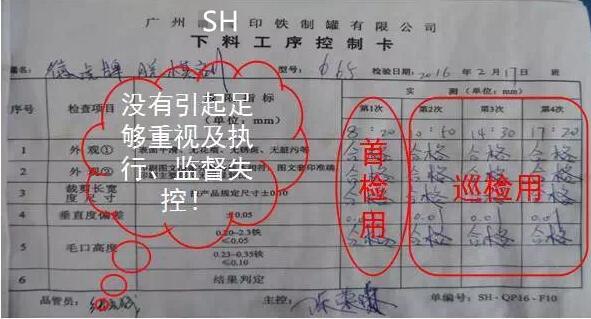 SH
广州 印铁制罐有限公司
下料工序控制卡
型号: 065 检验日期: 2016年2月17日 班
序号 检查项目 指标
(单位: mm)
实 测 (单位: mm)
第1次 第2次 第3次 第4次
8:20 10:50 14:30 17:20
没有引起足
够重视及执
行、监督失
控!
首
检
用
巡检用
1 外观① 合格 合格 合格 合格
2 外观② 图文套印准确 合格 合格 合格 合格
3 裁剪长宽
度尺寸 按产品规定尺寸±0.10 合格 合格 合格 合格
4 垂直度偏差 ±0.05 0.01 0.01 0.01
5 毛口高度 0.20-2.3铁
≤0.05 合格 合格 合格 合格
0.23-0.35铁
≤0.10
6 结果判定
品管员: 主控: 单编号: SH-QP16-F10